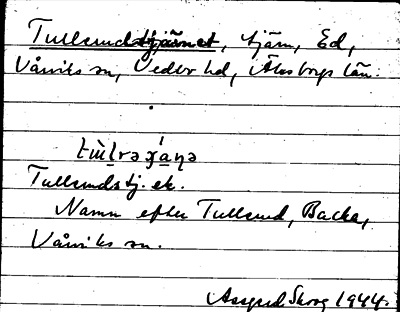 Tullsundstjärnet, tjärn, Ed,
Vårviks sn, Vedbo hd, Älvsborgs län.
Tullsundstj. ek.
Namn efter Tullsund, Backa,
Vårviks sn.
Assgerd Skog 1944.